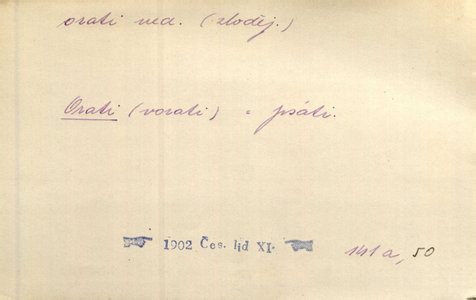 orati ned. (zloděj.)
Orati (vorati) = psáti.
1902 Čes. lid XI.
141a, 50